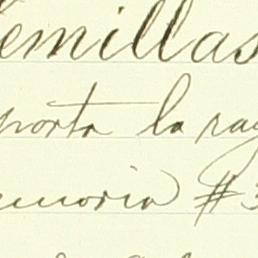 emillas
porta la ray
emoria #3